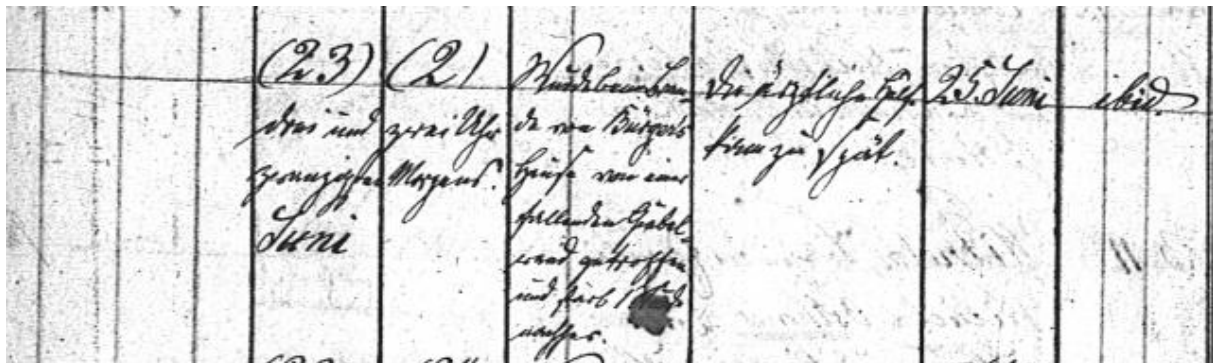 (23)
drei und
zwanzigsten
Juni
(2)
zwei Uhr
Morgens.
Wurde beim Bran-
de von Bürgers
Hause von einer
fallenden Giebel-
wand getroffen
und starb
nachher.
Die ärztliche Hülfe
kam zu spät.
25. Juni
ibid.